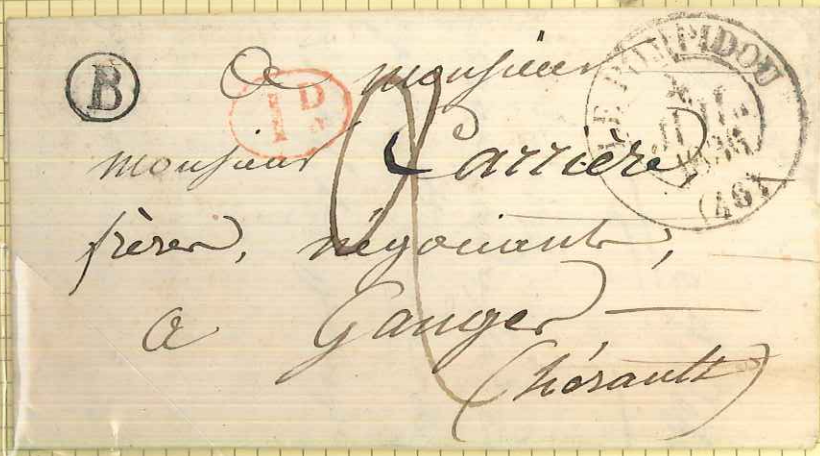 B
1 D
LE POMPIDOU
JUIL.
(48)
A monsieur
monsieur Carrière,
frères, négociants,
a Ganges
(hérault)